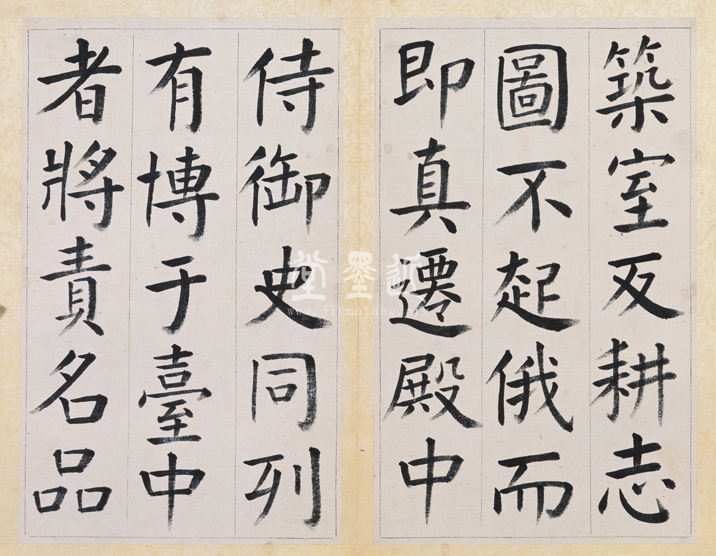 築室反耕志
圖不起俄而
即真遷殿中
侍御史同列
有博于臺中
者將責名品